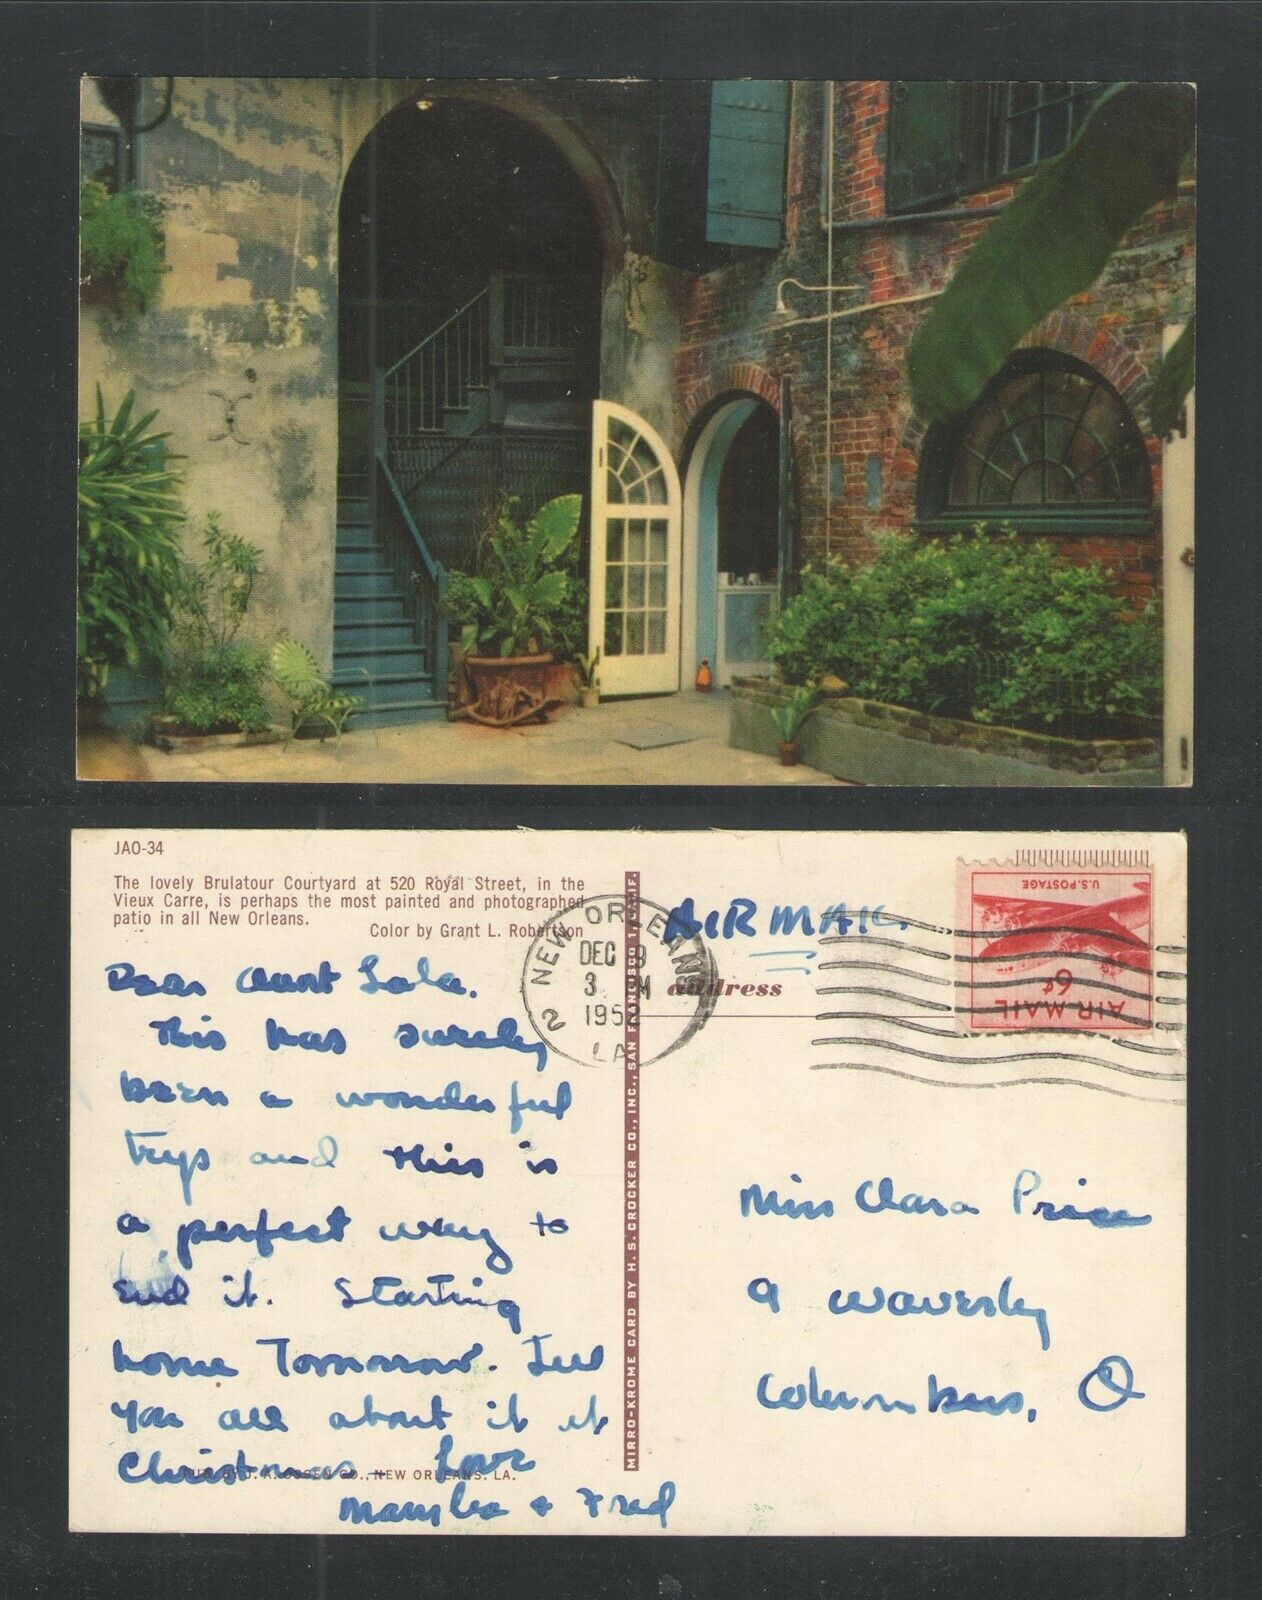 JAO-34
The lovely Brulatour Courtyard at 520 Royal Street, in the
Vieux Carre, is perhaps the most painted and photographed
patio in all New Orleans.
Color by Grant L. Robertson
Dear Aunt Lala.
This has surely
been a wonderful
trip and this is
a perfect way to
end it. Starting
home Tomorrow. Tell
you all about it at
Christmas - Love
& Fred
PUB. BY J. A. OSSEN CO., NEW ORLEANS, LA.
MIRRO-KROME CARD BY H. S. CROCKER CO., INC., SAN FRANCISCO 1, CALIF.
NEW ORLEANS 2
DEC 9
3 M
1952
LA
AIR MAIL
address
U.S. POSTAGE
6¢
AIR MAIL
Miss Clara Price
9 Waverly
Columbus, O